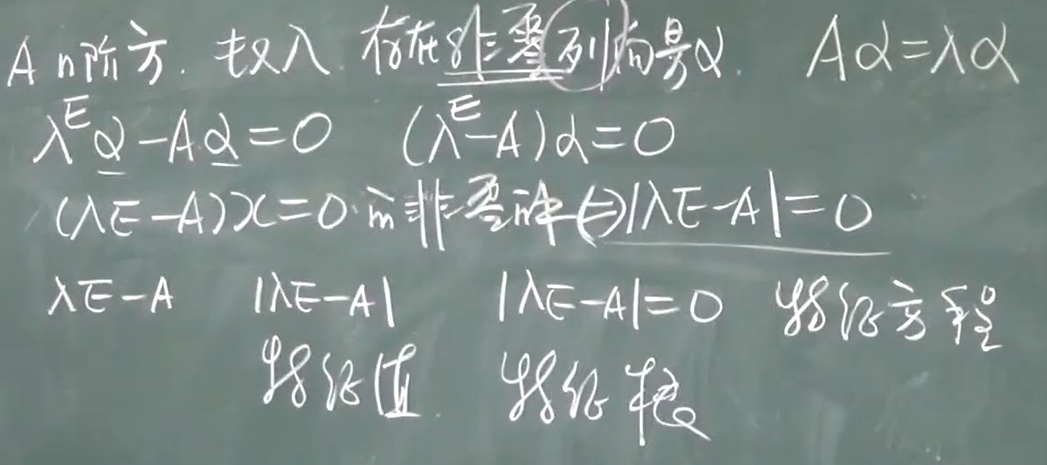 A n阶方. 数λ 存在非零列向量α. Aα=λα
λEα-Aα=0 (λE-A)α=0
(λE-A)x=0 的非零解⇔|λE-A|=0
λE-A |λE-A| |λE-A|=0 特征方程
特征值 特征根